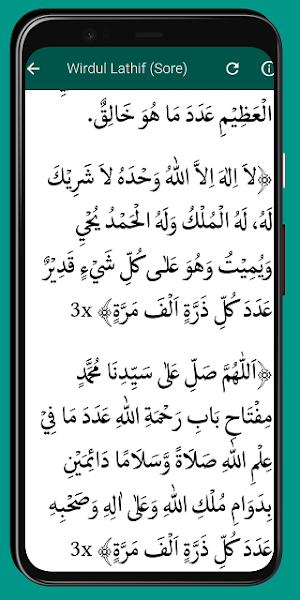 Wirdul Lathif (Sore)
الْعَظِيْمِ عَدَدَ مَا هُوَ خَالِقٌ.
﴿لاَ اِلٰهَ اِلاَّ اللهُ وَحْدَهُ لاَ شَرِيْكَ
لَهُ، لَهُ الْمُلْكُ وَلَهُ الْحَمْدُ يُحْيِي
وَيُمِيْتُ وَهُوَ عَلٰى كُلِّ شَيْءٍ قَدِيْرٌ
عَدَدَ كُلِّ ذَرَّةٍ اَلْفَ مَرَّةٍ﴾ 3x
﴿اَللّٰهُمَّ صَلِّ عَلٰى سَيِّدِنَا مُحَمَّدٍ
مِفْتَاحِ بَابِ رَحْمَةِ اللهِ عَدَدَ مَا فِيْ
عِلْمِ اللهِ صَلَاةً وَّسَلَامًا دَائِمَيْنِ
بِدَوَامِ مُلْكِ اللهِ وَعَلٰى اٰلِهِ وَصَحْبِهِ
عَدَدَ كُلِّ ذَرَّةٍ اَلْفَ مَرَّةٍ﴾ 3x